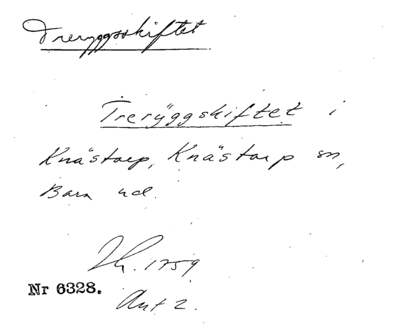 Treryggsskiftet
Treryggskiftet i
Knästorp, Knästorp sn,
Bara hd.
Lh. 1759
Nr 6328.
Akt 2.